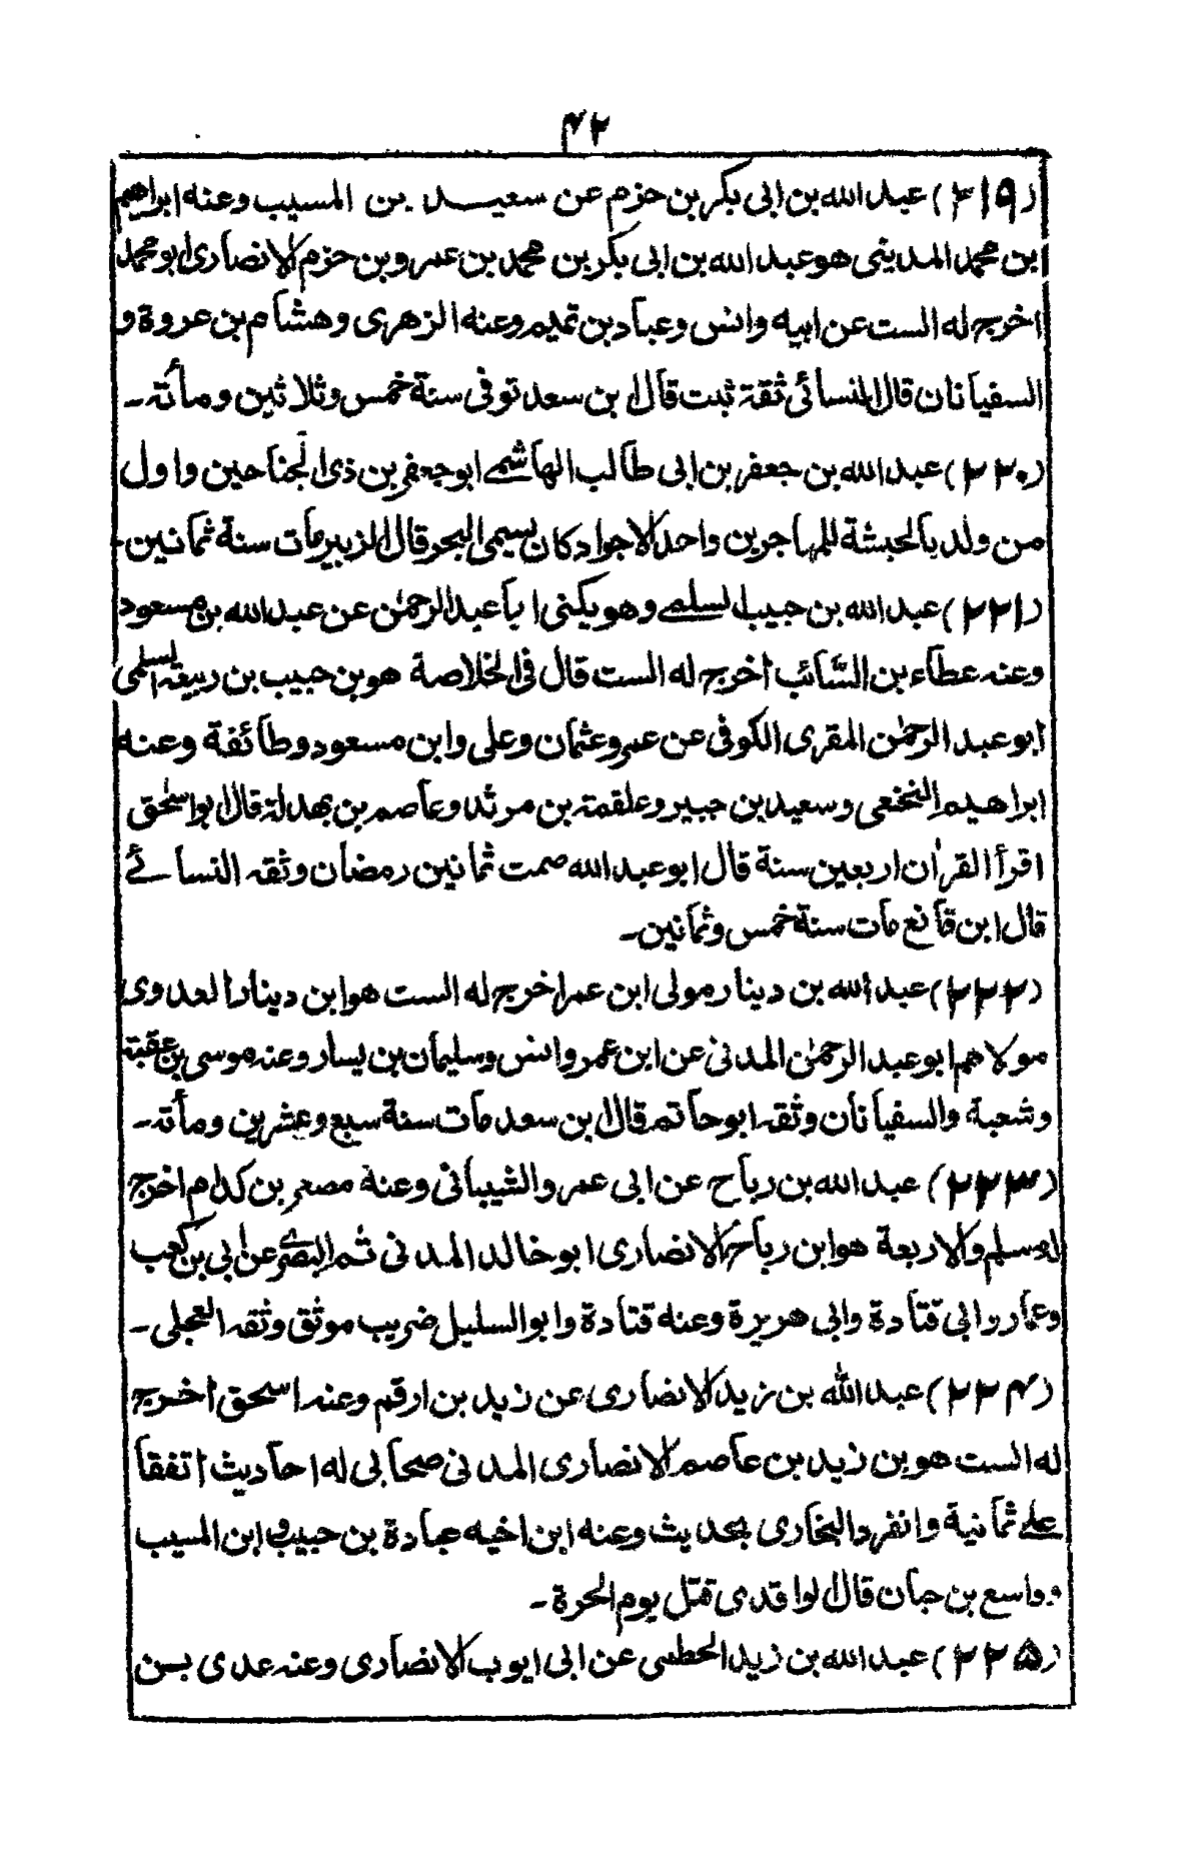 ۴۲
(۲۱۹) عبد الله بن ابی بکر بن حزم عن سعید بن المسیب وعنه ابراهیم
ابن محمد المدینی هو عبد الله بن ابی بکر بن محمد بن عمرو بن حزم الانصاری ابو محمد
اخرج له الست عن ابیه وانس وعباد بن تمیم وعنه الزهری وهشام بن عروة و
السفیانان قال النسائی ثقة ثبت قال ابن سعد توفی سنة خمس وثلاثین ومأته۔
(۲۲۰) عبد الله بن جعفر بن ابی طالب الهاشمے ابو جعفر بن ذی الجناحین واول
من ولد بالحبشة للمهاجرین واحد الاجواد کان یسمی البحر قال الزبیر مات سنة ثمانین۔
(۲۲۱) عبد الله بن حبیب السلمے وهو یکنی ابا عبد الرحمٰن عن عبد الله بن مسعود
وعنه عطاء بن السّائب اخرج له الست قال فی الخلاصة هو بن حبیب بن ربیعه السلمی
ابو عبد الرحمٰن المقری الکوفی عن عمر وعثمان وعلی وابن مسعود وطائفة وعنه
ابراهیم النخعی وسعید بن جبیر وعلقمته بن مرثد وعاصم بن بهدلة قال ابو اسحٰق
اقرأ القراٰن اربعین سنة قال ابو عبد الله صمت ثمانین رمضان وثقه النسائے
قال ابن قانع مات سنة خمس وثمانین۔
(۲۲۲) عبد الله بن دینار مولی ابن عمر اخرج له الست هو ابن دینار العدوی
مولاهم ابو عبد الرحمٰن المدنی عن ابن عمر وانس وسلیمان بن یسار وعنه موسی بن عقبته
وشعبة والسفیانان وثقه ابو حاتم قال ابن سعد مات سنة سبع وعشرین ومأته۔
(۲۲۳) عبد الله بن رباح عن ابی عمرو الشیبانی وعنة مصعر بن کدام اخرج
له مسلم والاربعة هو ابن رباح الانصاری ابو خالد المدنی ثم البصرے عن ابی بن کعب
وعمار وابی قتادة وابی هریرة وعنه قتادة وابو السلیل ضریب موثق وثقه العجلی۔
(۲۲۴) عبد الله بن زید الانصاری عن زید بن ارقم وعنه اسحق اخرج
له الست هو بن زید بن عاصم الانصاری المدنی صحابی له احادیث اتفقا
علے ثمانیة وانفرد البخاری بحدیث وعنه ابن اخیه عبادة بن حبیب وابن المسیب
وواسع بن حبان قال الواقدی قتل یوم الحرة۔
(۲۲۵) عبد الله بن زید الخطمی عن ابی ایوب الانصاری وعنه عدی بن